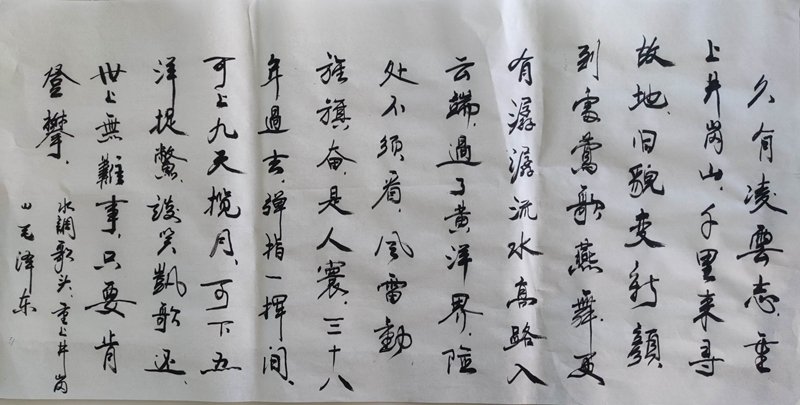 久有凌雲志，重
上井岗山，千里来寻
故地，旧貌变新颜，
到處莺歌燕舞，更
有潺潺流水，高路入
云端，過了黄洋界，险
处不须看，风雷動，
旌旗奋，是人寰，三十八
年過去，彈指一挥间，
可上九天揽月，可下五
洋捉鱉，談笑凯歌还，
世上無難事，只要肯
登攀，
水調歌头，重上井岗
山 毛泽东